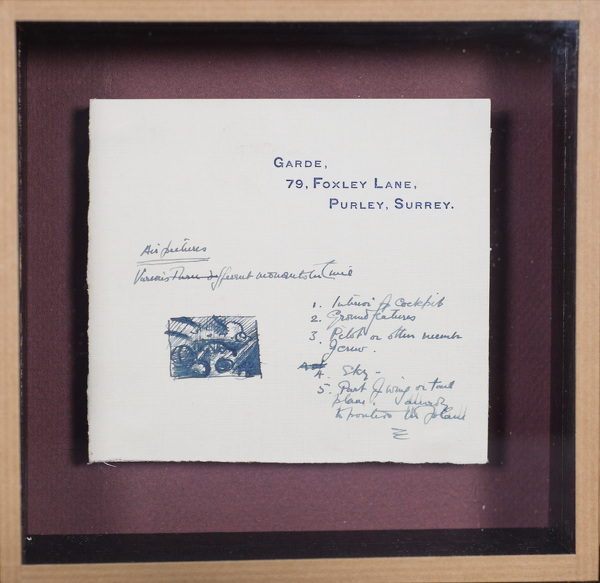 GARDE,
79, FOXLEY LANE,
PURLEY, SURREY.
Air pictures
Various different moments in time
1. Interior of cockpit
2. Ground features
3. Pilot or other member
of crew.
4. Sky -
5. Part of wing or tail
plane.
to position the plane